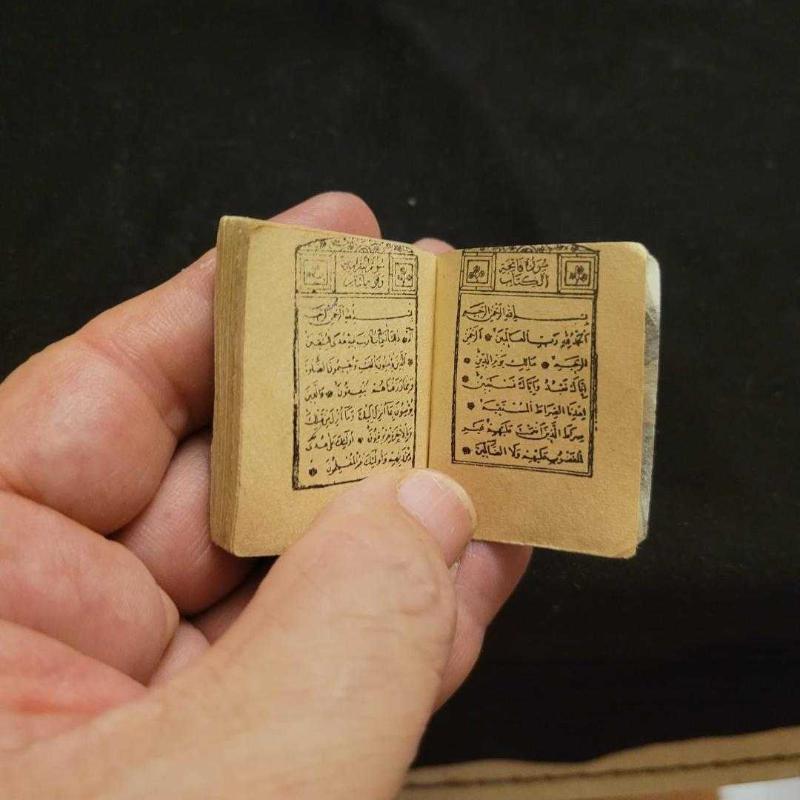 سورة فاتحة
الكتاب
بسم الله الرحمن الرحيم
الحمد لله رب العالمين الرحمن
الرحيم مالك يوم الدين
إياك نعبد وإياك نستعين
اهدنا الصراط المستقيم
صراط الذين أنعمت عليهم غير
المغضوب عليهم ولا الضالين
سورة البقرة
بسم الله الرحمن الرحيم
الم ذلك الكتاب لا ريب فيه هدى للمتقين
الذين يؤمنون بالغيب ويقيمون الصلوة
ومما رزقناهم ينفقون والذين
يؤمنون بما أنزل إليك وما أنزل من قبلك
وبالآخرة هم يوقنون أولئك على هدى
من ربهم وأولئك هم المفلحون